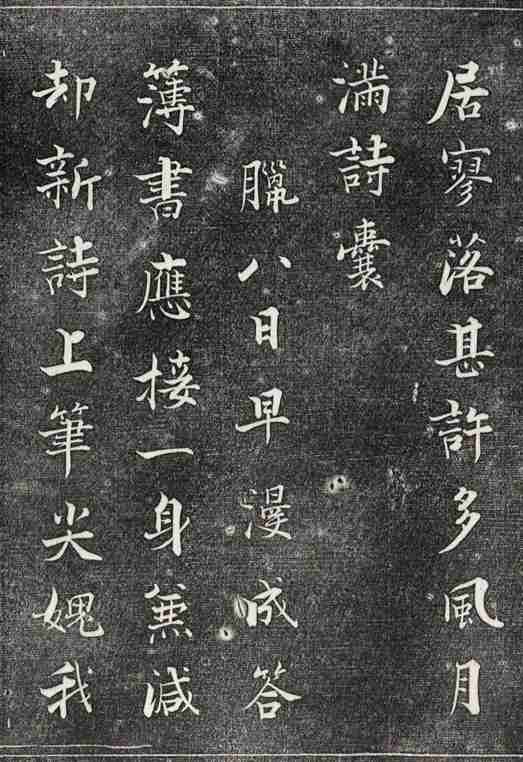 居寥落甚許多風月
滿詩囊
臘八日早漫成答
簿書應接一身兼減
却新詩上筆尖媿我